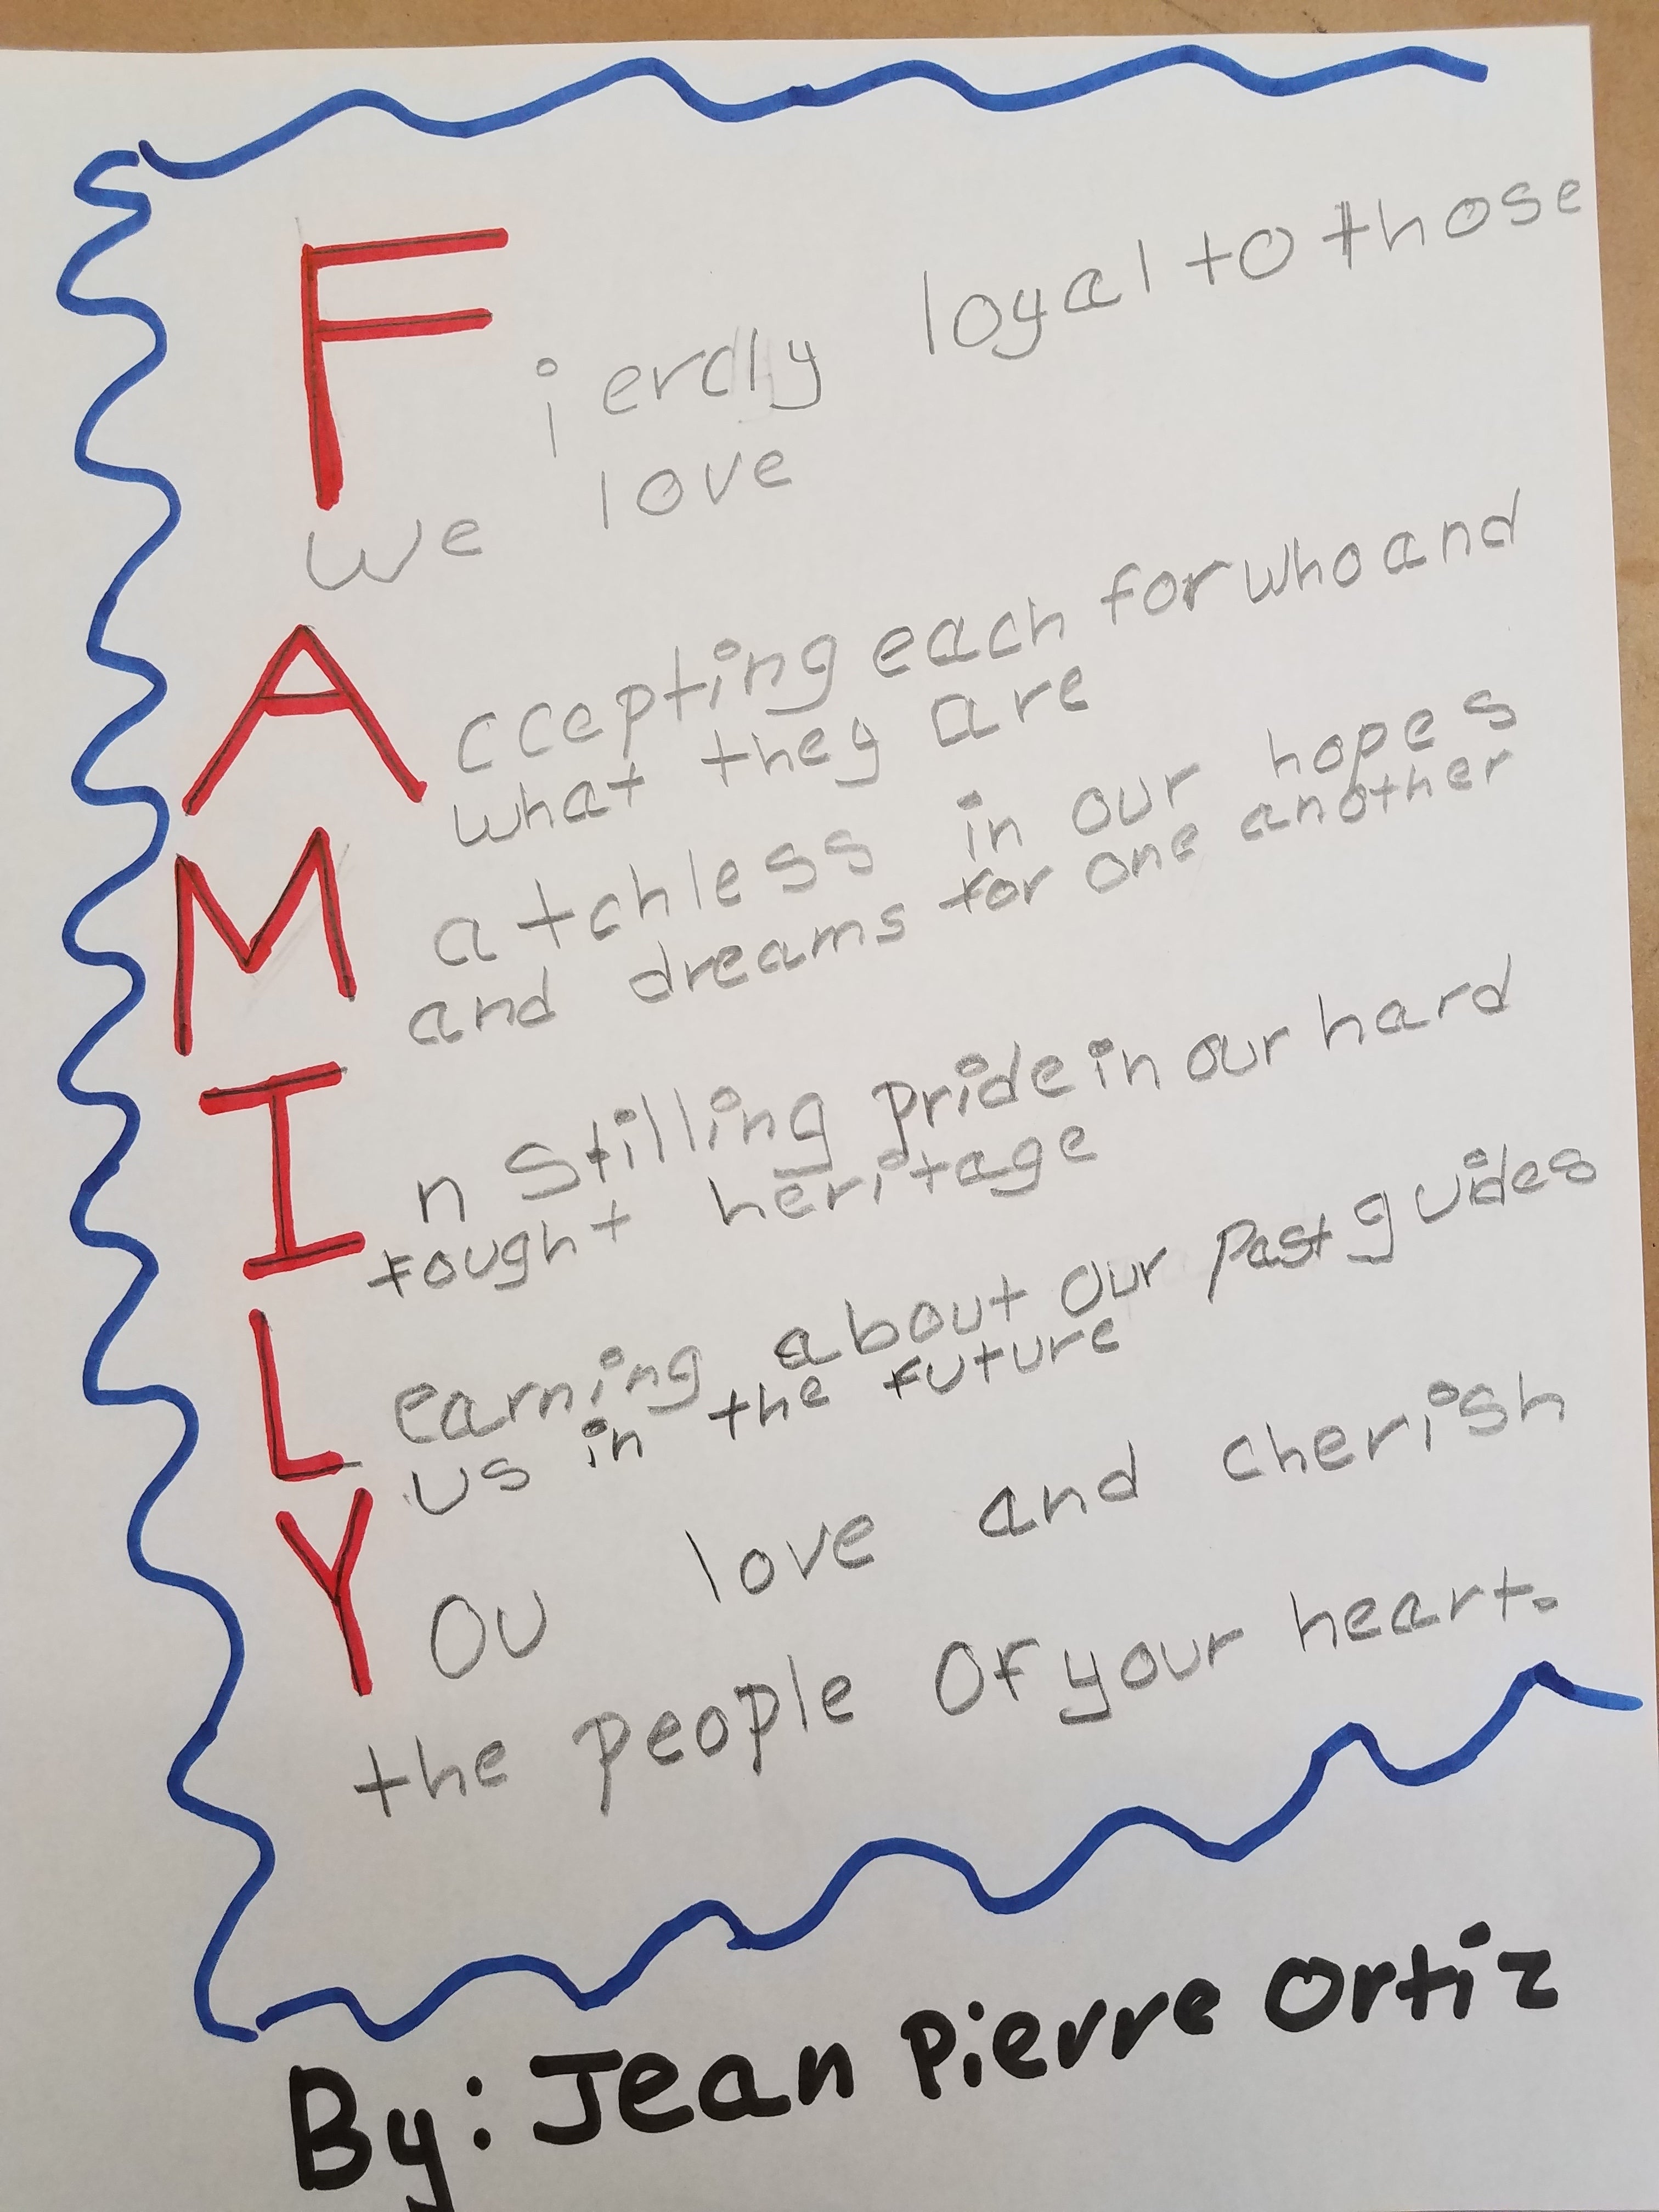 Fierdly loyal to those
we love
Accepting each for who and
what they are
Matchless in our hopes
and dreams for one another
Instilling pride in our hard
fought heritage
Learning about our past guides
us in the future
You love and cherish
the people of your heart.
By: Jean Pierre Ortiz